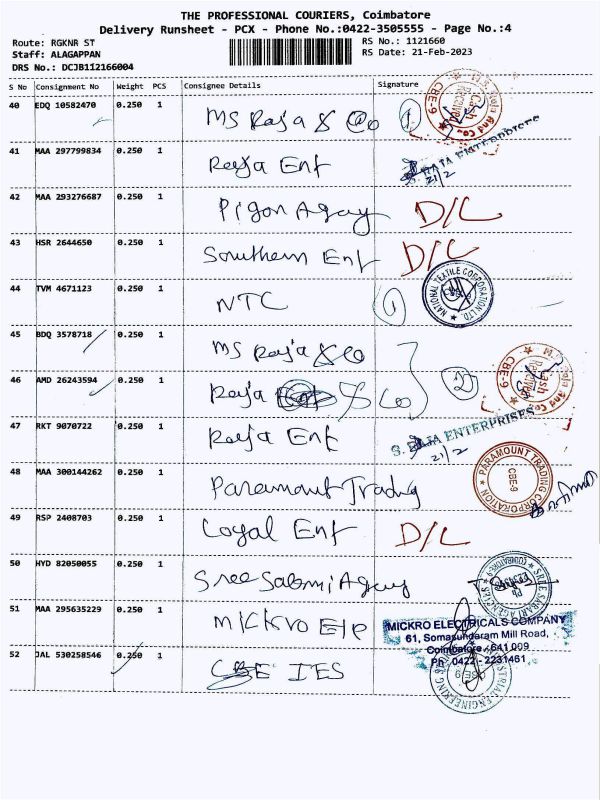 THE PROFESSIONAL COURIERS, Coimbatore
Delivery Runsheet - PCX - Phone No.:0422-3505555 - Page No.:4
Route: RGKNR ST
RS No.: 1121660
Staff: ALAGAPPAN
RS Date: 21-Feb-2023
DRS No.: DCJB112166004
S No Consignment No Weight PCS Consignee Details Signature
40 EDQ 10582470 0.250 1 MS Raja & Co 1
CBE-9
41 MAA 297799834 0.250 1 Raja Ent S. RAJA ENTERPRISES
21/2
42 MAA 293276687 0.250 1 Pigon Agency D/L
43 HSR 2644650 0.250 1 Southern Ent D/L
44 TVM 4671123 0.250 1 NTC 1 NATIONAL TEXTILE CORPORATION LTD
45 BDQ 3578718 0.250 1 MS Raja & Co
46 AMD 26243594 0.250 1 Raja & Co 2 M. Raja And Co. Cash Received CBE-9
47 RKT 9070722 0.250 1 Raja Ent S. RAJA ENTERPRISES
21/2
48 MAA 300144262 0.250 1 Paramount Trading PARAMOUNT TRADING CORPORATION CBE-9
49 RSP 2408703 0.250 1 Loyal Ent D/L
50 HYD 82050055 0.250 1 Sree Sabari Agency SREE SABARI AGENCIES COIMBATORE-9
51 MAA 295635229 0.250 1 Mickro Ele MICKRO ELECTRICALS COMPANY
61, Somasundaram Mill Road,
Coimbatore - 641 009
Ph : 0422 - 2231461
52 JAL 530258546 0.250 1 CBE IES
CBE 9